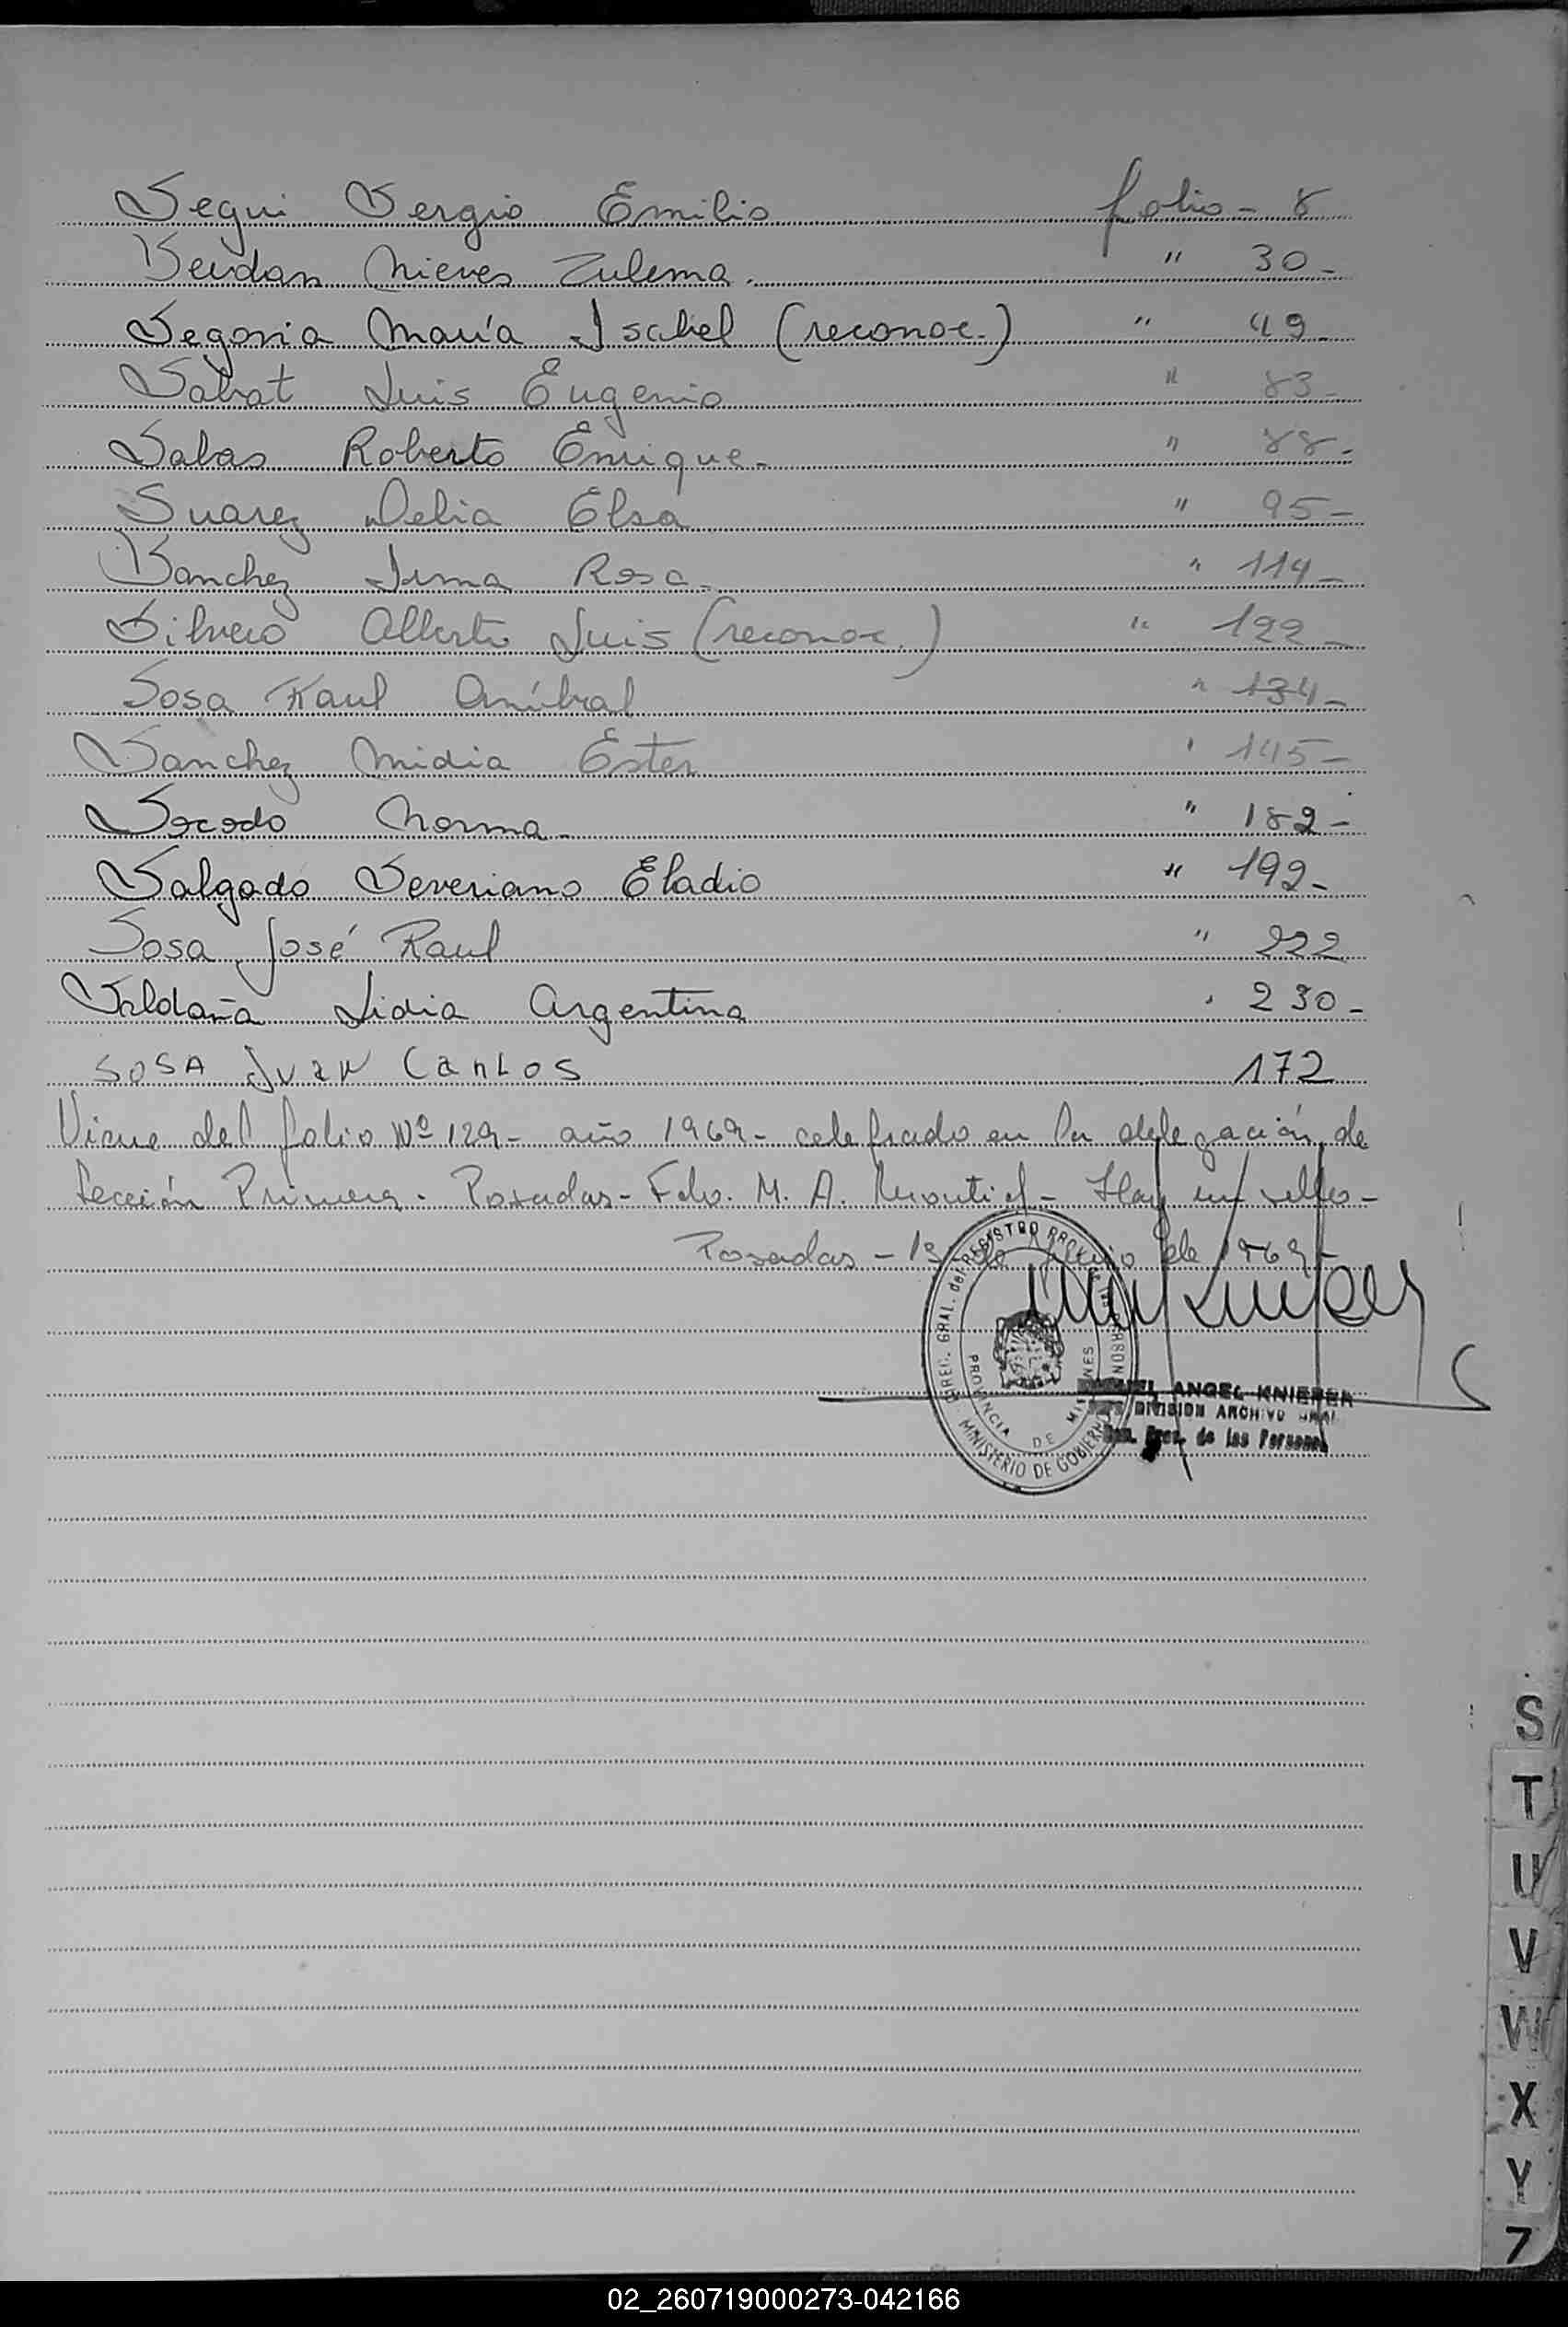 Segui Sergio Emilio folio - 8
Seudan Nieves Zulema. " 30 -
Segovia María Isabel (reconoc.) " 49 -
Sabat Luis Eugenio " 83 -
Salas Roberto Enrique - " 88 -
Suarez Delia Elsa " 95 -
Sanchez Irma Rosa - " 114 -
Silvero Alberto Luis (reconoc.) " 122 -
Sosa Raul Aníbal " 134 -
Sanchez Nidia Ester " 145 -
Socodo Norma - " 182 -
Salgado Severiano Eladio " 192 -
Sosa José Raul " 222
Saldaña Lidia Argentina " 230 -
SOSA JUAN CARLOS 172
Viene del folio Nº 129 - año 1969 - celebrado en la delegación de
Sección Primera - Posadas - Fdo. M. A. Montiel - Hay un sello -
Posadas - de de 1969 -
DIREC. GRAL. del REGISTRO PROV. DE LAS PERSONAS
PROVINCIA DE MISIONES
MINISTERIO DE GOBIERNO
ANGEL KNIEPER
DIVISION ARCHIVO GRAL
de las Personas
S
T
U
V
W
X
Y
Z
02_260719000273-042166